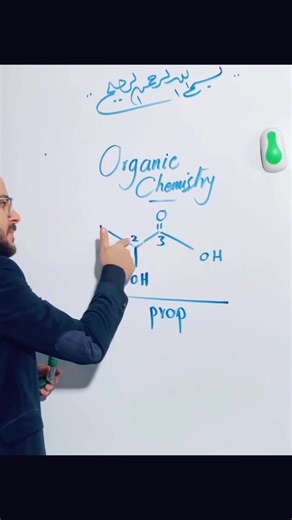 " بسم الله الرحمن الرحيم "
Organic
Chemistry
O
2 3
OH OH
prop